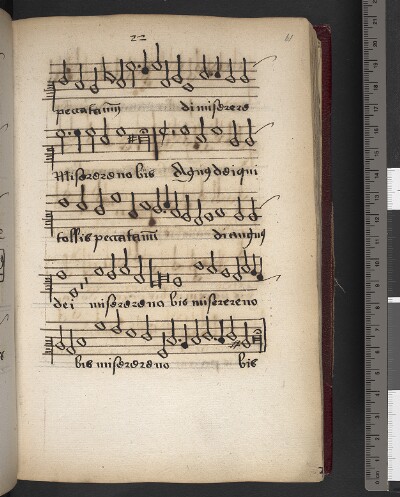 22
peccata mu[n]di miserere
Miserere no bis Agnus dei qui
tollis peccata mu[n]di angnus
dei miserere no bis miserere no
bis miserere no bis